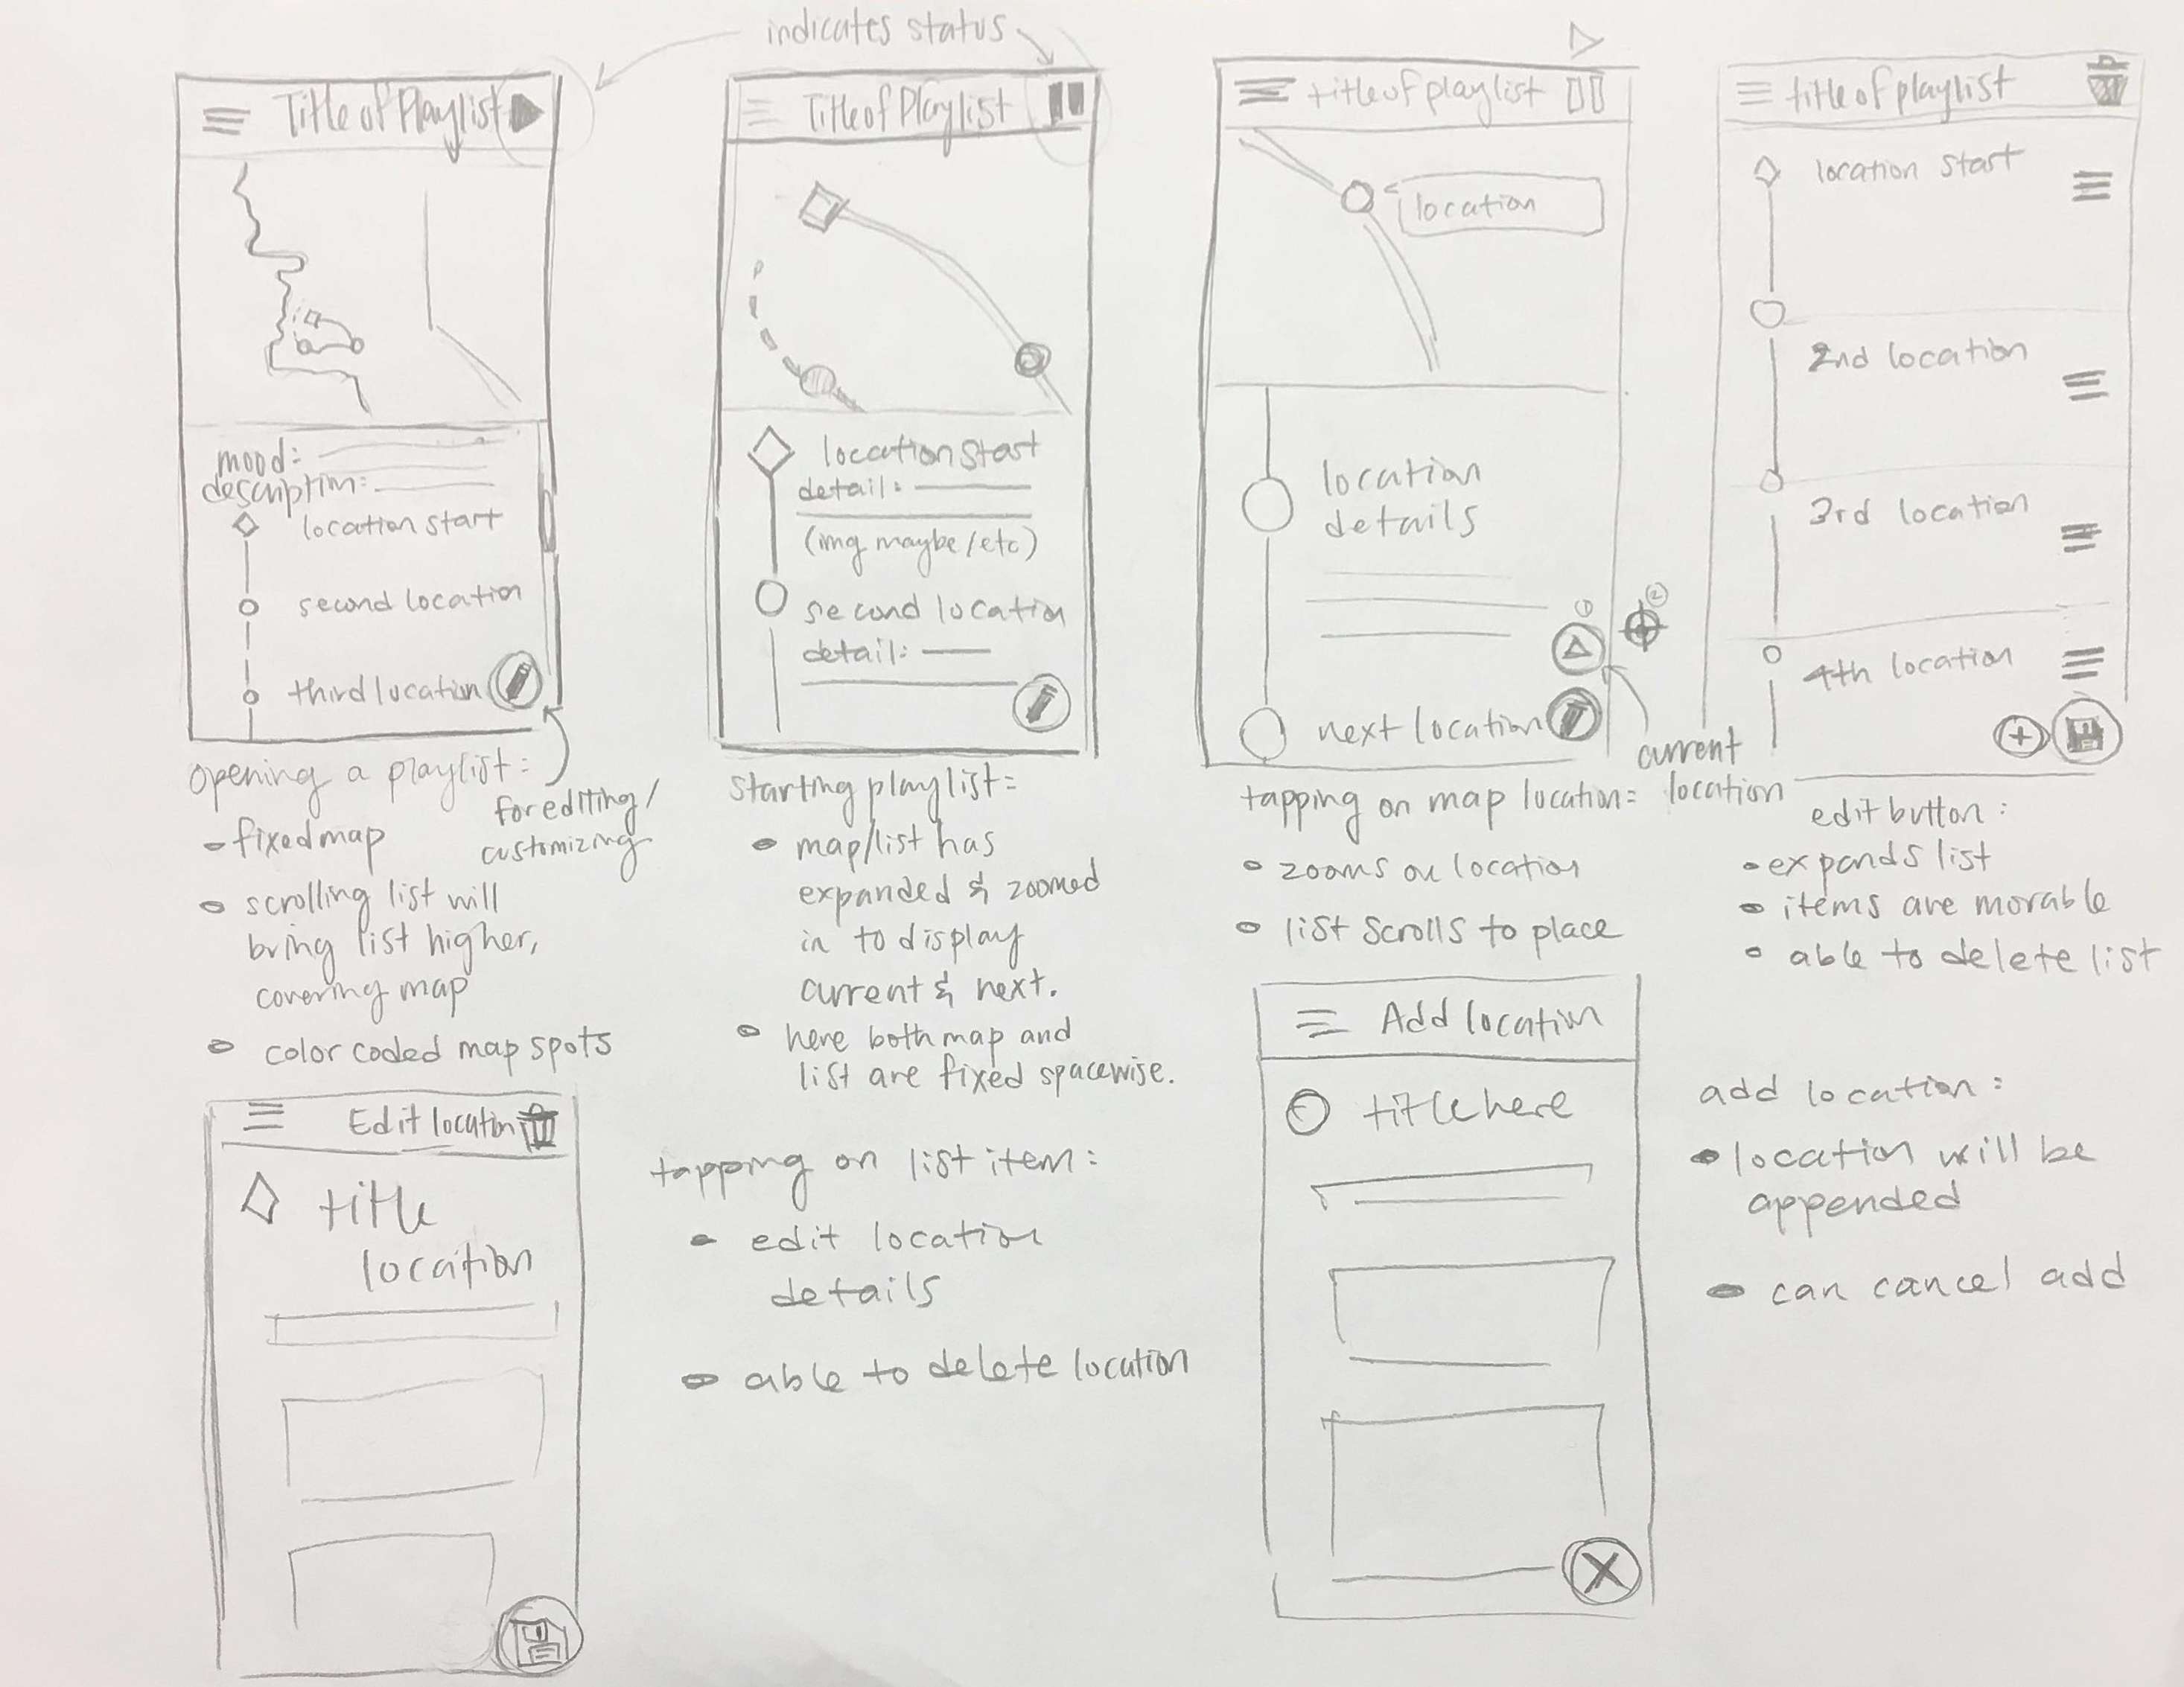 indicates status
Title of Playlist
mood:
description:
location start
second location
third location
opening a playlist:
for editing/
customizing
- fixed map
scrolling list will
bring list higher,
covering map
color coded map spots
Title of Playlist
location start
detail:
(img maybe/etc)
second location
detail:
starting playlist:
map/list has
expanded & zoomed
in to display
current & next.
here both map and
list are fixed spacewise.
title of playlist
location
location
details
next location
1
2
current
location
tapping on map location:
zooms on location
list scrolls to place
title of playlist
location start
2nd location
3rd location
4th location
edit button:
expands list
items are movable
able to delete list
Edit location
title
location
tapping on list item:
edit location
details
able to delete location
Add location
title here
add location:
location will be
appended
can cancel add